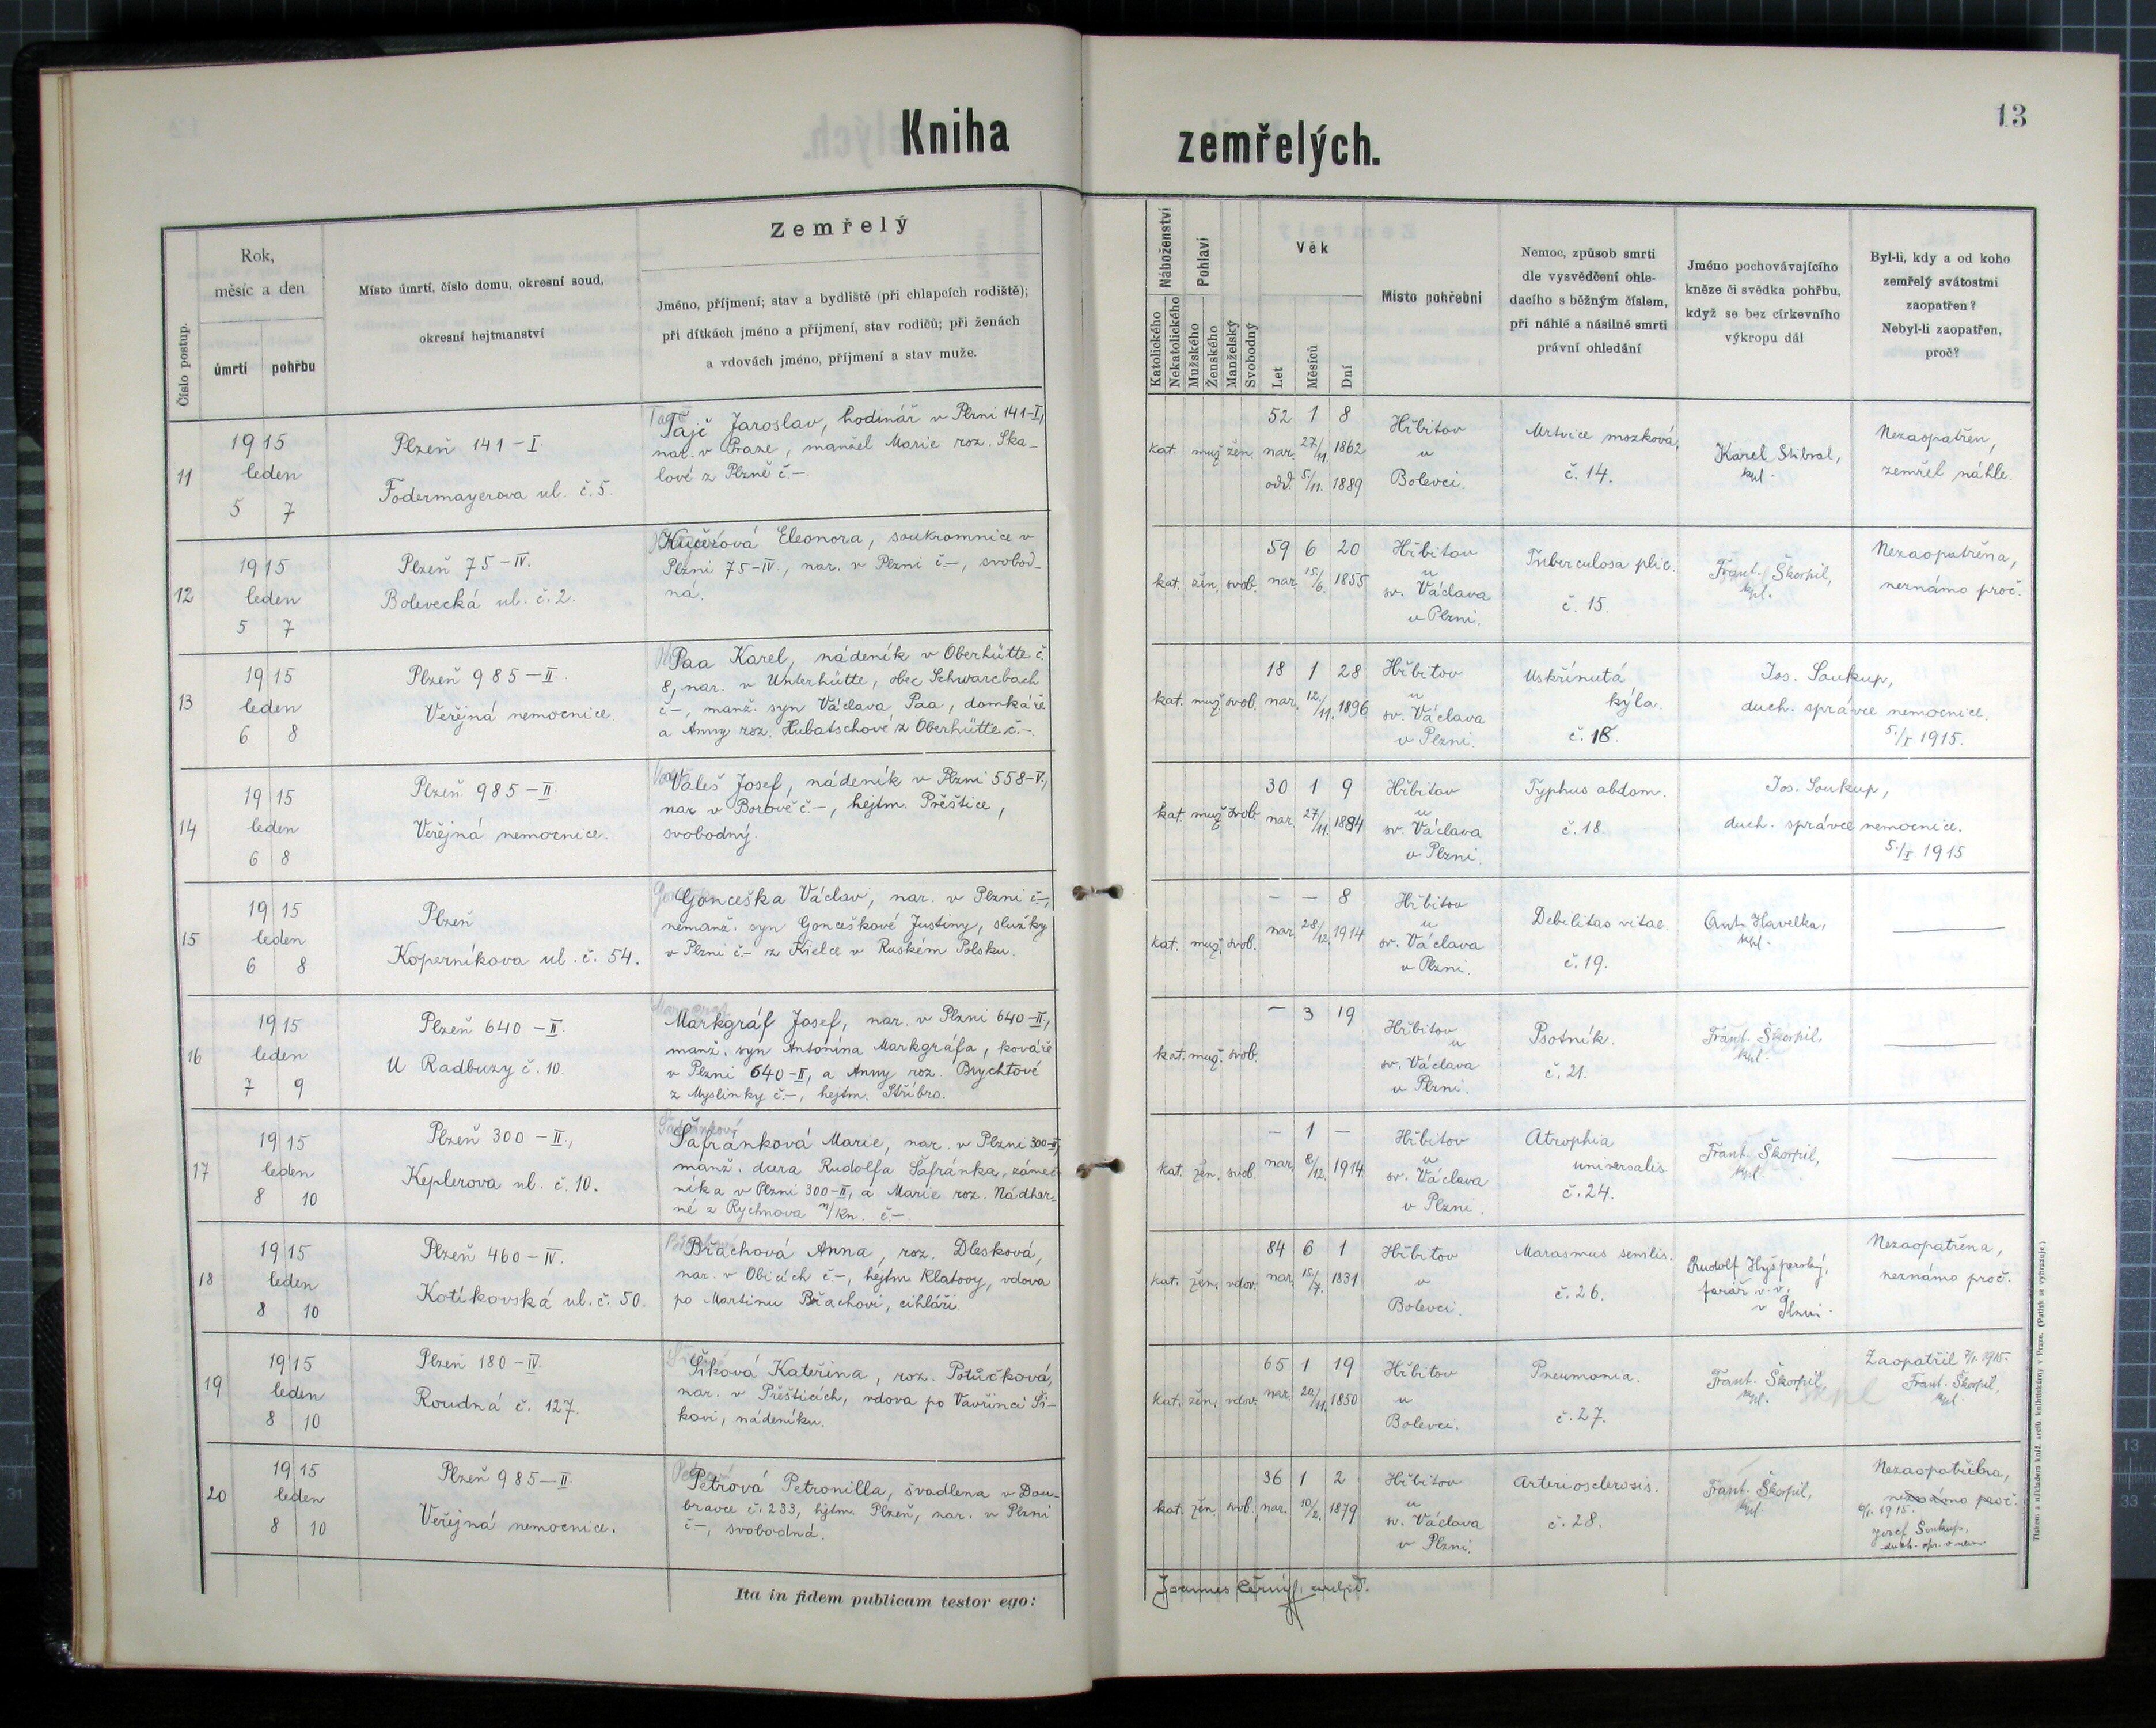 13
Kniha zemřelých.
Číslo postup.
Rok,
měsíc a den
úmrtí
pohřbu
Místo úmrtí, číslo domu, okresní soud,
okresní hejtmanství
Zemřelý
Jméno, příjmení; stav a bydliště (při chlapcích rodiště);
při dítkách jméno a příjmení, stav rodičů; při ženách
a vdovách jméno, příjmení a stav muže.
Náboženství
Katolického
Nekatolického
Pohlaví
Mužského
Ženského
Manželský
Svobodný
Věk
Let
Měsíců
Dní
Místo pohřební
Nemoc, způsob smrti
dle vysvědčení ohle-
dacího s běžným číslem,
při náhlé a násilné smrti
právní ohledání
Jméno pochovávajícího
kněze či svědka pohřbu,
když se bez církevního
výkropu dál
Byl-li, kdy a od koho
zemřelý svátostmi
zaopatřen?
Nebyl-li zaopatřen,
proč?
11
1915
leden
5 7
Plzeň 141-I.
Fodermayerova ul. č. 5.
Tajč Jaroslav, hodinář v Plzni 141-I,
nar. v Praze, manžel Marie roz. Ska-
lové z Plzně č.-.
kat. muž. žen.
52 1 8
nar. 27/11. 1862
odd. 5/11. 1889
Hřbitov
u
Bolevci.
Mrtvice mozková,
č. 14.
Karel Stibral,
kpl.
Nezaopatřen,
zemřel náhle.
12
1915
leden
5 7
Plzeň 75-IV.
Bolevecká ul. č. 2.
Kučerová Eleonora, soukromnice v
Plzni 75-IV., nar. v Plzni č.-, svobod-
ná.
kat. žen. svob.
59 6 20
nar. 15/6. 1855
Hřbitov
u
sv. Václava
v Plzni.
Tuberculosa plic.
č. 15.
Frant. Škorpil,
kpl.
Nezaopatřena,
neznámo proč.
13
1915
leden
6 8
Plzeň 985-II.
Veřejná nemocnice.
Paa Karel, nádeník v Oberhütte č.
8, nar. v Unterhütte, obec Schwarcbach
č.-, manž. syn Václava Paa, domkáře
a Anny roz. Hubatschové z Oberhütte č.-.
kat. muž. svob.
18 1 28
nar. 12/11. 1896
Hřbitov
u
sv. Václava
v Plzni.
Uskřinutá
kýla.
č. 18.
Jos. Soukup,
duch. správce nemocnice.
5./I 1915.
14
1915
leden
6 8
Plzeň 985-II.
Veřejná nemocnice.
Valeš Josef, nádeník v Plzni 558-V.,
nar. v Borově č.-, hejtm. Přeštice,
svobodný.
kat. muž. svob.
30 1 9
nar. 27/11. 1884
Hřbitov
u
sv. Václava
v Plzni.
Typhus abdom.
č. 18.
Jos. Soukup,
duch. správce nemocnice.
5./I. 1915
15
1915
leden
6 8
Plzeň
Koperníkova ul. č. 54.
Gonceška Václav, nar. v Plzni č.-,
nemanž. syn Gonceškové Justiny, služky
v Plzni č.- z Kielce v Ruském Polsku.
kat. muž. svob.
- - 8
nar. 28/12. 1914
Hřbitov
u
sv. Václava
v Plzni.
Debilitas vitae.
č. 19.
Ant. Havelka,
kpl.
16
1915
leden
7 9
Plzeň 640-II.
U Radbuzy č. 10.
Markgráf Josef, nar. v Plzni 640-II.,
manž. syn Antonína Markgráfa, kováře
v Plzni 640-II, a Anny roz. Brychtové
z Myslinky č.-, hejtm. Stříbro.
kat. muž. svob.
- 3 19
Hřbitov
u
sv. Václava
v Plzni.
Psotník.
č. 21.
Frant. Škorpil,
kpl.
17
1915
leden
8 10
Plzeň 300-II.,
Keplerova ul. č. 10.
Šafránková Marie, nar. v Plzni 300-II,
manž. dcera Rudolfa Šafránka, zámeč-
níka v Plzni 300-II, a Marie roz. Nádher-
né z Rychnova n/Kn. č.-.
kat. žen. svob.
- 1 -
nar. 8./12. 1914
Hřbitov
u
sv. Václava
v Plzni.
Atrophia
universalis
č. 24.
Frant. Škorpil,
kpl.
18
1915
leden
8 10
Plzeň 460-IV.
Kotíkovská ul. č. 50.
Břachová Anna, roz. Dlesková,
nar. v Obicích č-, hejtm. Klatovy, vdova
po Martinu Břachovi, cihláři.
kat. žen. vdov.
84 6 1
nar. 15./7. 1831
Hřbitov
u
Bolevci.
Marasmus senilis.
č. 26.
farář v. v.
v Plzni.
Nezaopatřena,
neznámo proč.
19
1915
leden
8 10
Plzeň 180-IV.
Roudná č. 127.
Šiková Kateřina, roz. Potůčková,
nar. v Přešticích, vdova po Vavřinci Ši-
kovi, nádeníku.
kat. žen. vdov.
65 1 19
nar. 20/11. 1850
Hřbitov
u
Bolevci.
Pneumonia.
č. 27.
Frant. Škorpil,
kpl.
Zaopatřil 7/I. 1915.
Frant. Škorpil,
kpl.
20
1915
leden
8 10
Plzeň 985-II
Veřejná nemocnice.
Petrová Petronilla, švadlena v Dou-
bravce č. 233, hjtm. Plzeň, nar. v Plzni
č-, svobodná.
kat. žen. svob.
36 1 2
nar. 10/2. 1879
Hřbitov
u
sv. Václava
v Plzni.
Arteriosclerosis.
č. 28.
Frant. Škorpil,
kpl.
Nezaopatřena,
neznámo proč.
6/I. 1915.
Josef Soukup,
duch. spr. v nem
Ita in fidem publicam testor ego:
Joannes Černý, archid.
Tiskem a nákladem kníž. arcib. knihtiskárny v Praze. (Patisk se vyhrazuje.)